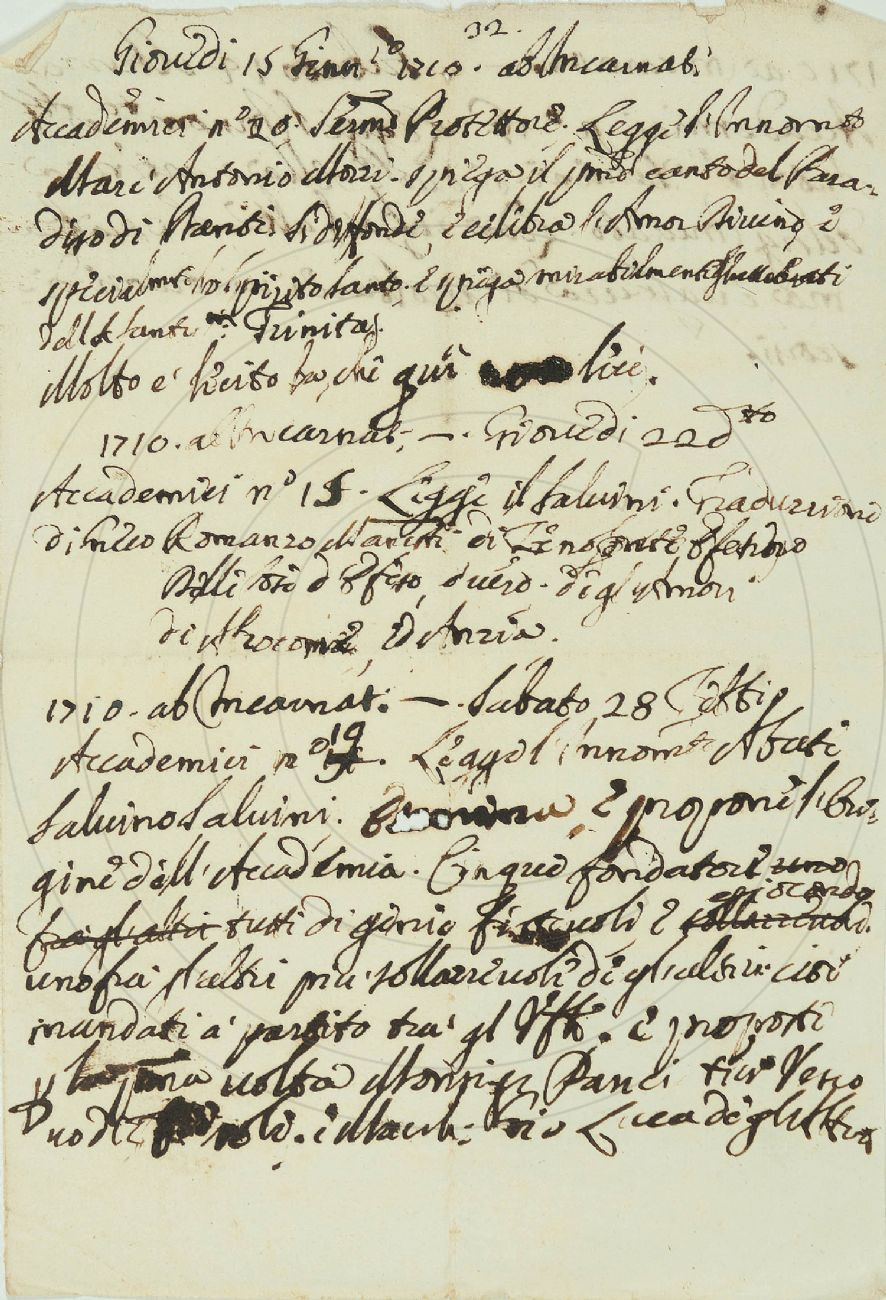 32.
Giovedi 15 Genn.o 1710. ab Incarnat.
Accademici n.o 20. Serm.o Protettore. Legge l'Innom.to
Marc'Antonio Mozzi. spiega il primo canto del Para-
diso di Dante. Si diffonde, e celebra l'Amor Divino, e
specialm.te lo Spirito Santo. e spiega mirabilmente
della Santiss.ma Trinità.
Molto è lecito là, che quì lice.
1710. ab Incarnat. —. Giovedi 22 d.to
Accademici n.o 15. Legge il Salvini. Traduzzione
di Greco Romanzo di Senofonte Efesio
Delle cose d'Efeso, overo degl'Amori
di Abrocome, ed Anzia.
1710. ab Incarnat. —. Sabato 28
Accademici n.o 19. Legge l'Innom.to Abate
Salvino Salvini. e propone l'ori-
gine dell'Accademia. Cinque fondatori uno
giocondo
fra gl'altri tutti di genio e sollazzevole.
uno fra gl'altri più sollazzevole degl'altri: cioè
mandati a partito tra gl'Uffi. e proposti
p la prima volta Monsig.r Panci Vesco
vo di Fiesole. e Luca degl'